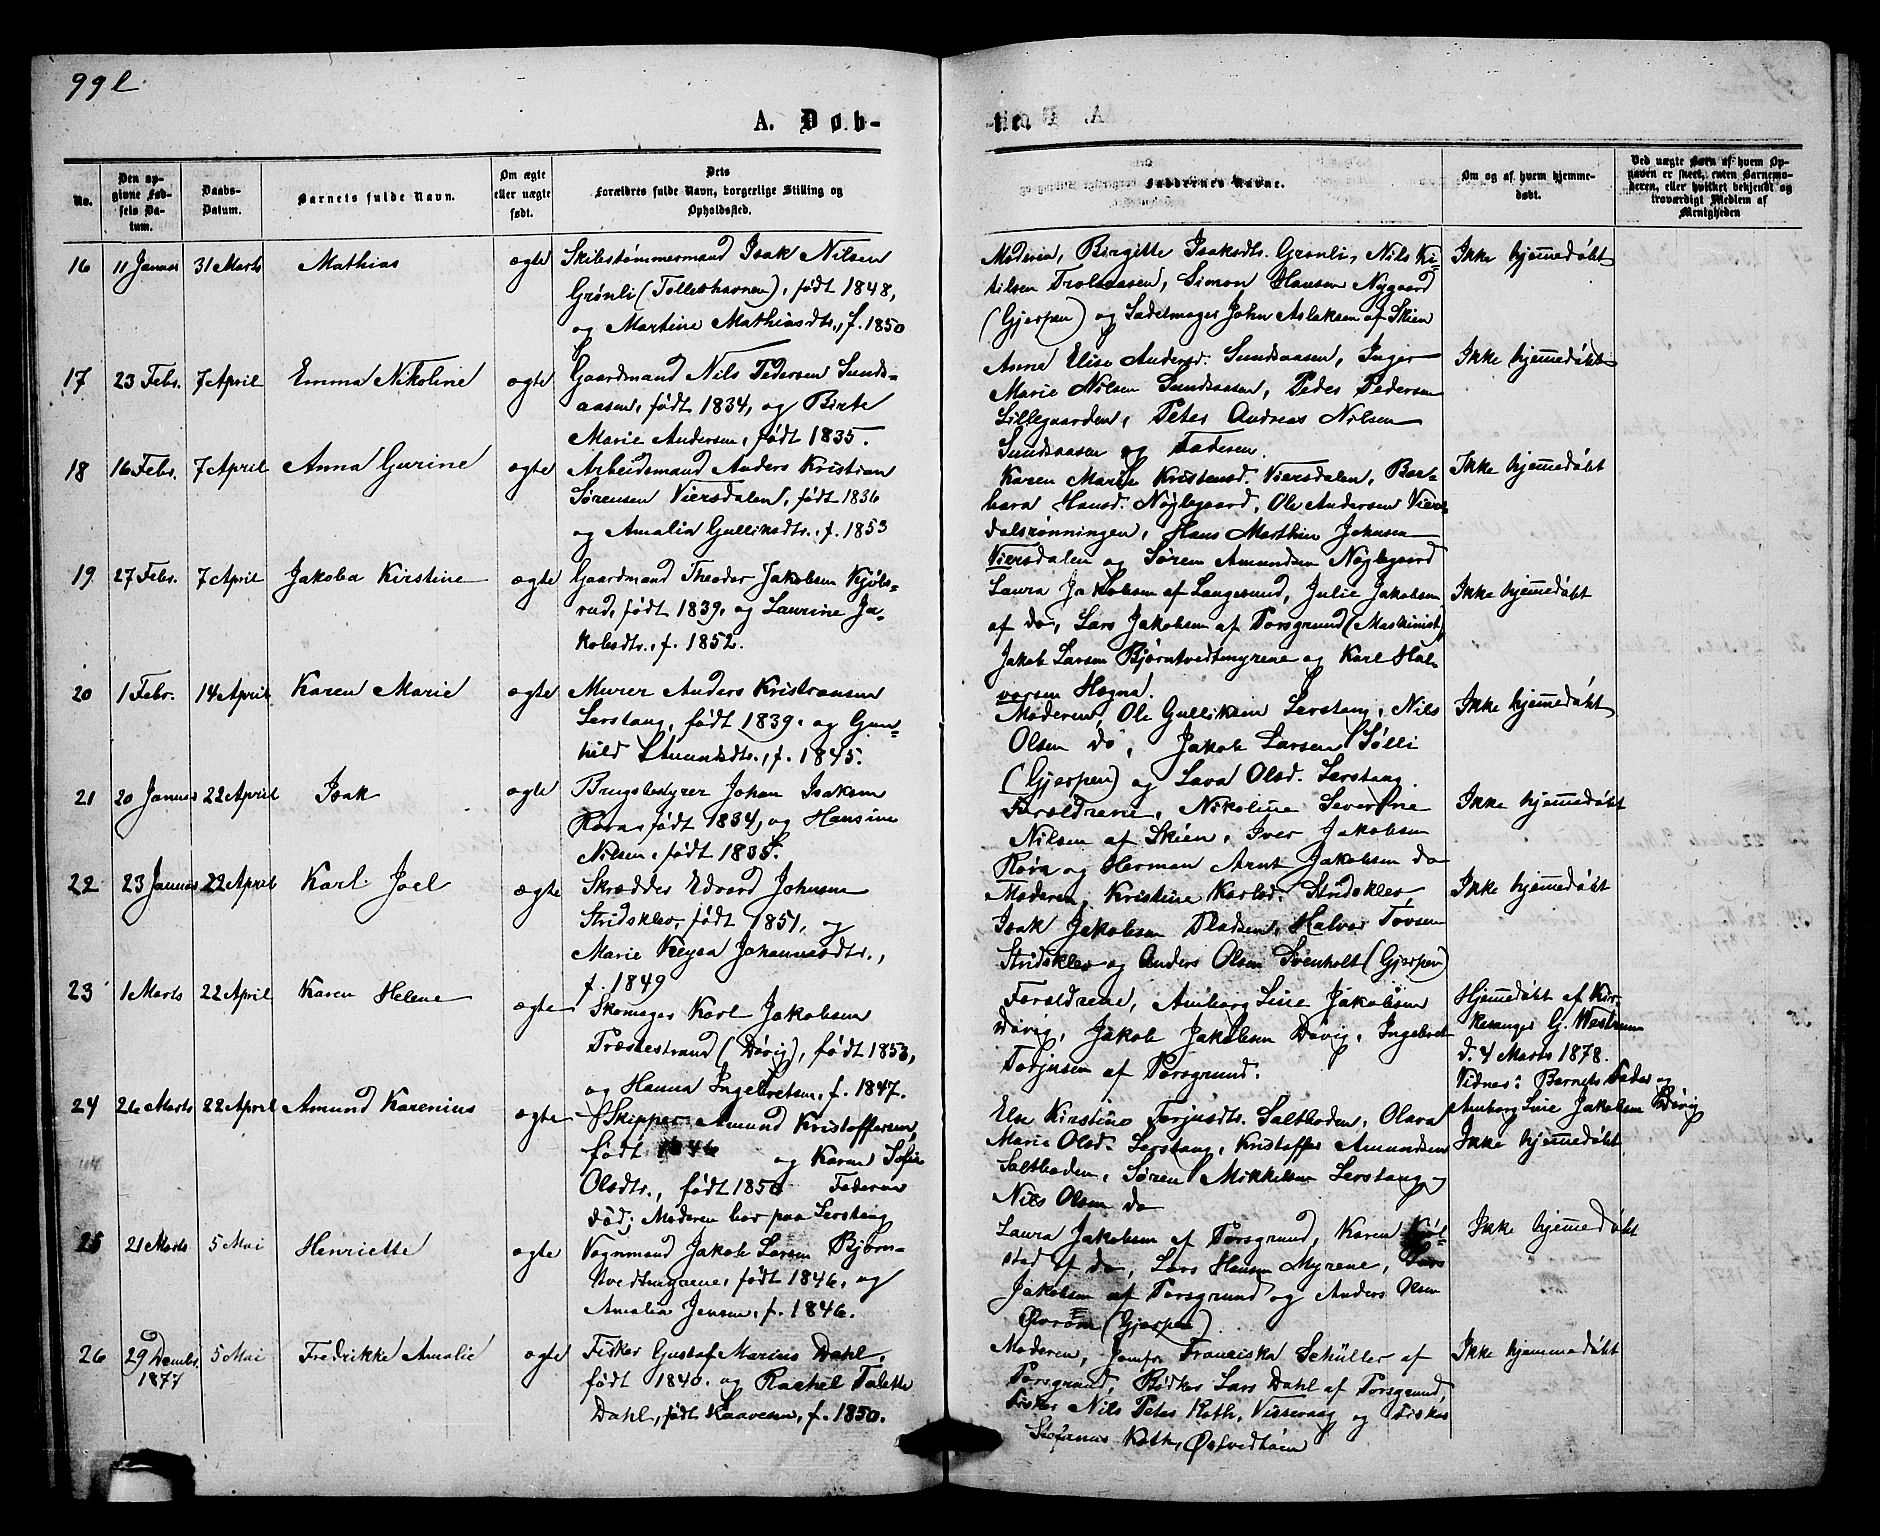 99 b
A. Døb-
te.
No.
Den op-
givne Fød-
sels Da-
tum.
Daabs-
Datum.
Barnets fulde Navn.
Om ægte
eller uægte
født.
Dets
Forældres fulde Navn, borgerlige Stilling og
Opholdssted.
Faddernes Navne.
Om og af hvem hjemme-
døbt.
Ved uægte Børn af hvem Op-
gaven er skeet, enten Barnemo-
deren, eller hvilket bekjendt og
troværdigt Medlem af
Menigheden
16 11 Januar 31 Marts Mathias ægte Skibstømmermand Isak Nilsen
Grønli (Tolletshavnen), født 1848,
og Martine Mathiasdtr., f. 1850
Moderen, Birgitte Isaksdtr. Grønli, Nils Ki-
tilsen Trolaasen, Simon Hansen Nygaard
(Gjerpen) og Sadelmager John Aslaksen af Skien
Ikke hjemmedøbt
17 23 Febr. 7 April Emma Nikoline ægte Gaardmand Nils Pedersen Sunds-
aasen, født 1834, og Birte
Marie Andersen, født 1835.
Anne Elise Andersd. Sundsaasen, Inger
Marie Nilsen Sundsaasen, Peder Pedersen
Lillegaarden, Peter Andreas Nilsen
Sundsaasen og Faderen.
Ikke hjemmedøbt
18 16 Febr. 7 April Anna Gurine ægte Arbeidsmand Anders Kristian
Sørensen Viersdalen, født 1836
og Amalia Gulliksdtr., f. 1853
Karen Marie Kristensd. Viersdalen, Bar-
bara Hansd. Nøglegaard, Ole Andersen Viers-
dalsrønningen, Hans Marthin Johnsen
Viersdalen og Søren Amundsen Nøglegaard
Ikke hjemmedøbt
19 27 Febr. 7 April Jakoba Kirstine ægte Gaardmand Theodor Jakobsen Kjøls-
rud, født 1839, og Laurine Ja-
kobsdtr., f. 1852.
Laura Jakobsen af Langesund, Julie Jakobsen
af do, Lars Jakobsen af Porsgrund (Maskinist)
Jakob Larsen Bjørntvedtmyrene og Karl Hal-
vorsen Høgna.
Ikke hjemmedøbt
20 1 Febr. 14 April Karen Marie ægte Murer Anders Kristiansen
Lerstang, født 1839, og Gun-
hild Amundsdtr., f. 1845.
Moderen, Ole Gulliksen Lerstang, Nils
Olsen do, Jakob Larsen Sølli
(Gjerpen) og Lava Olsd. Lerstang.
Ikke hjemmedøbt
21 20 Januar 22 April Isak ægte Brugsbestyrer Johan Isaksen
Røra, født 1834, og Hansine
Nilsen, født 1835.
Forældrene, Nikoline Severine
Nilsen af Skien, Iver Jakobsen
Røra og Herman Arnt Jakobsen do
Ikke hjemmedøbt
22 23 Januar 22 April Karl Joel ægte Skrædder Edvard Johnsen
Stridsklev, født 1851, og
Marie Johannesdtr.,
f. 1849
Moderen, Kristine Karlsd. Stridsklev
Isak Jakobsen Pladsen, Halvor Tovsen
Stridsklev og Anders Olsen Svenholt (Gjerpen)
Ikke hjemmedøbt
23 1 Marts 22 April Karen Helene ægte Skomager Karl Jakobsen
Præstestrand (Døvig), født 1853,
og Hanna Ingebretsen, f. 1847.
Forældrene, Amborg Line Jakobsen
Døvig, Jakob Jakobsen Døvig, Ingebret
Torjusen af Porsgrund.
Hjemmedøbt af Kir-
kesanger G. Westrum
d. 4 Marts 1878.
Vidner: Barnets Fader og
Amborg Line Jakobsen Døvig
24 26 Marts 22 April Amund Karenius ægte Skipper Amund Kristoffersen,
født 1846 og Karen Sofie
Olsdtr., født 1850 Faderen
død; Moderen bor paa Lerstang
Else Kirstine Torjusdtr. Saltboden, Olava
Marie Olsd. Lerstang, Kristoffer Amundsen
Saltboden, Søren Mikkelsen Lerstang og
Nils Olsen do
Ikke hjemmedøbt
25 21 Marts 5 Mai Henriette ægte Vognmand Jakob Larsen Bjørn-
tvedtmyrene, født 1846, og
Amalia Jensen, f. 1846.
Laura Jakobsen af Porsgrund, Karen Kjøl-
stad af do, Lars Hansen Myrene, Lars
Jakobsen af Porsgrund og Anders Olsen
Øvrum (Gjerpen)
Ikke hjemmedøbt
26 29 Decmbr. 1877 5 Mai Fredrikke Amalie ægte Fisker Gustaf Marius Dahl,
født 1840, og Rachel Talette
Dahl, født Kaavesen, f. 1850.
Moderen, Jomfr Franciska Schüller af
Porsgrund, Bødker Lars Dahl af Porsgrund,
Fisker Nils Peter Koth, Vissevaag og Fisker
Stefanus Koth, Østvedtøen
Ikke hjemmedøbt